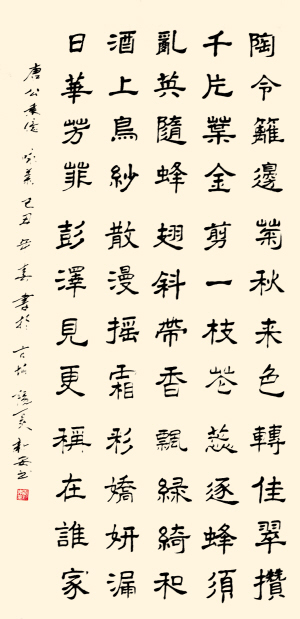 陶令籬邊菊秋来色轉佳翠攢
千片葉金剪一枝芲蕊逐蜂須
亂英隨蜂翅斜帶香飄綠綺和
酒上鳥紗散漫摇霜彩嬌妍漏
日華芳菲彭澤見更稱在誰家
唐公乘億 己丑 書於